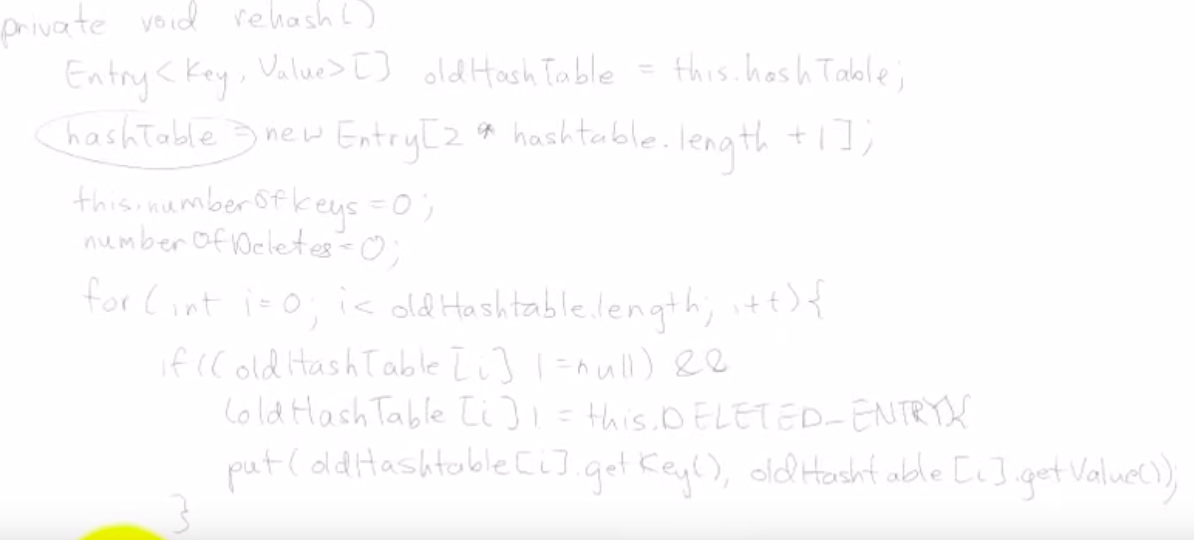 private void rehash()
Entry<Key, Value>[] oldHashTable = this.hashTable;
hashTable = new Entry[2 * hashtable.length + 1];
this.numberOfkeys = 0;
numberOfDeletes = 0;
for (int i = 0; i < oldHashtable.length; i++){
if((oldHashTable[i] != null) &&
(oldHashTable[i] != this.DELETED_ENTRY){
put(oldHashtable[i].getKey(), oldHashtable[i].getValue());
}